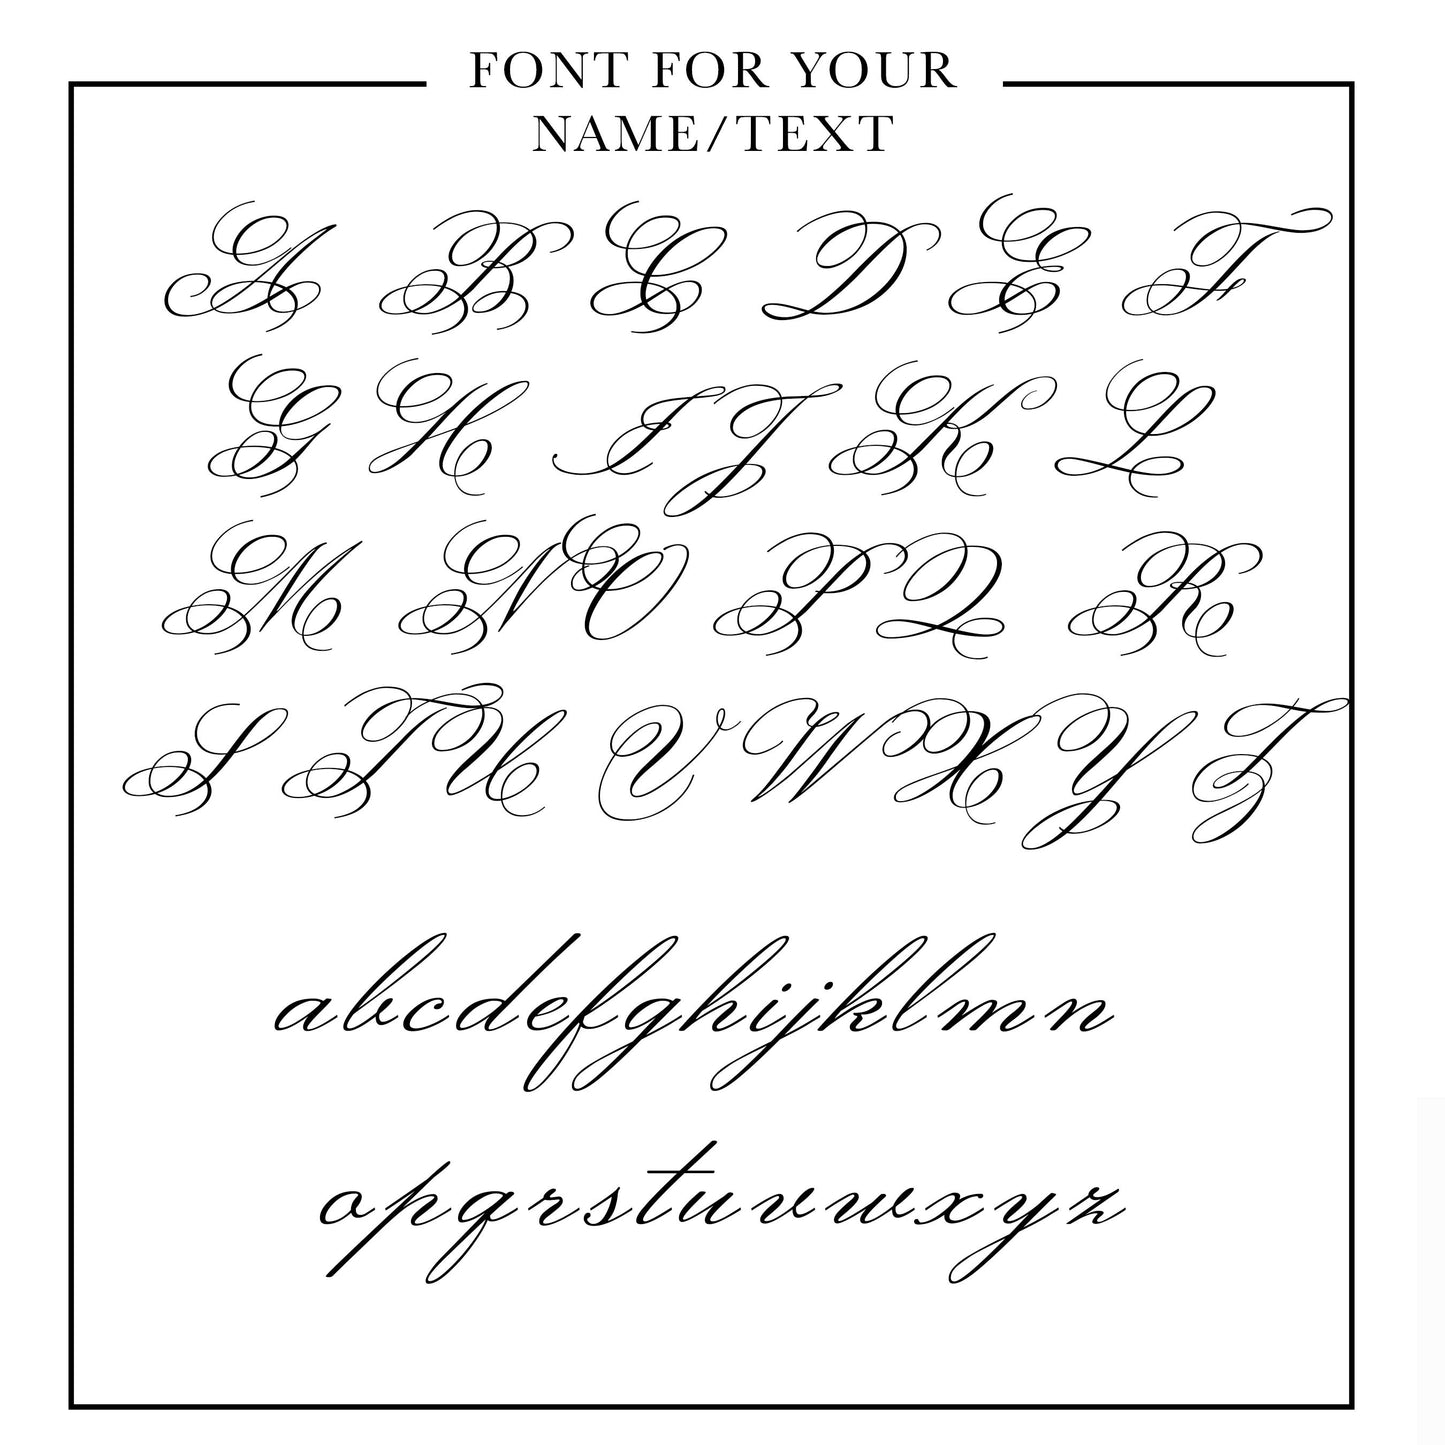 FONT FOR YOUR
NAME/TEXT
A B C D E F
G H I J K L
M N O P Q R
S T U V W X Y Z
abcdefghijklmn
opqrstuvwxyz